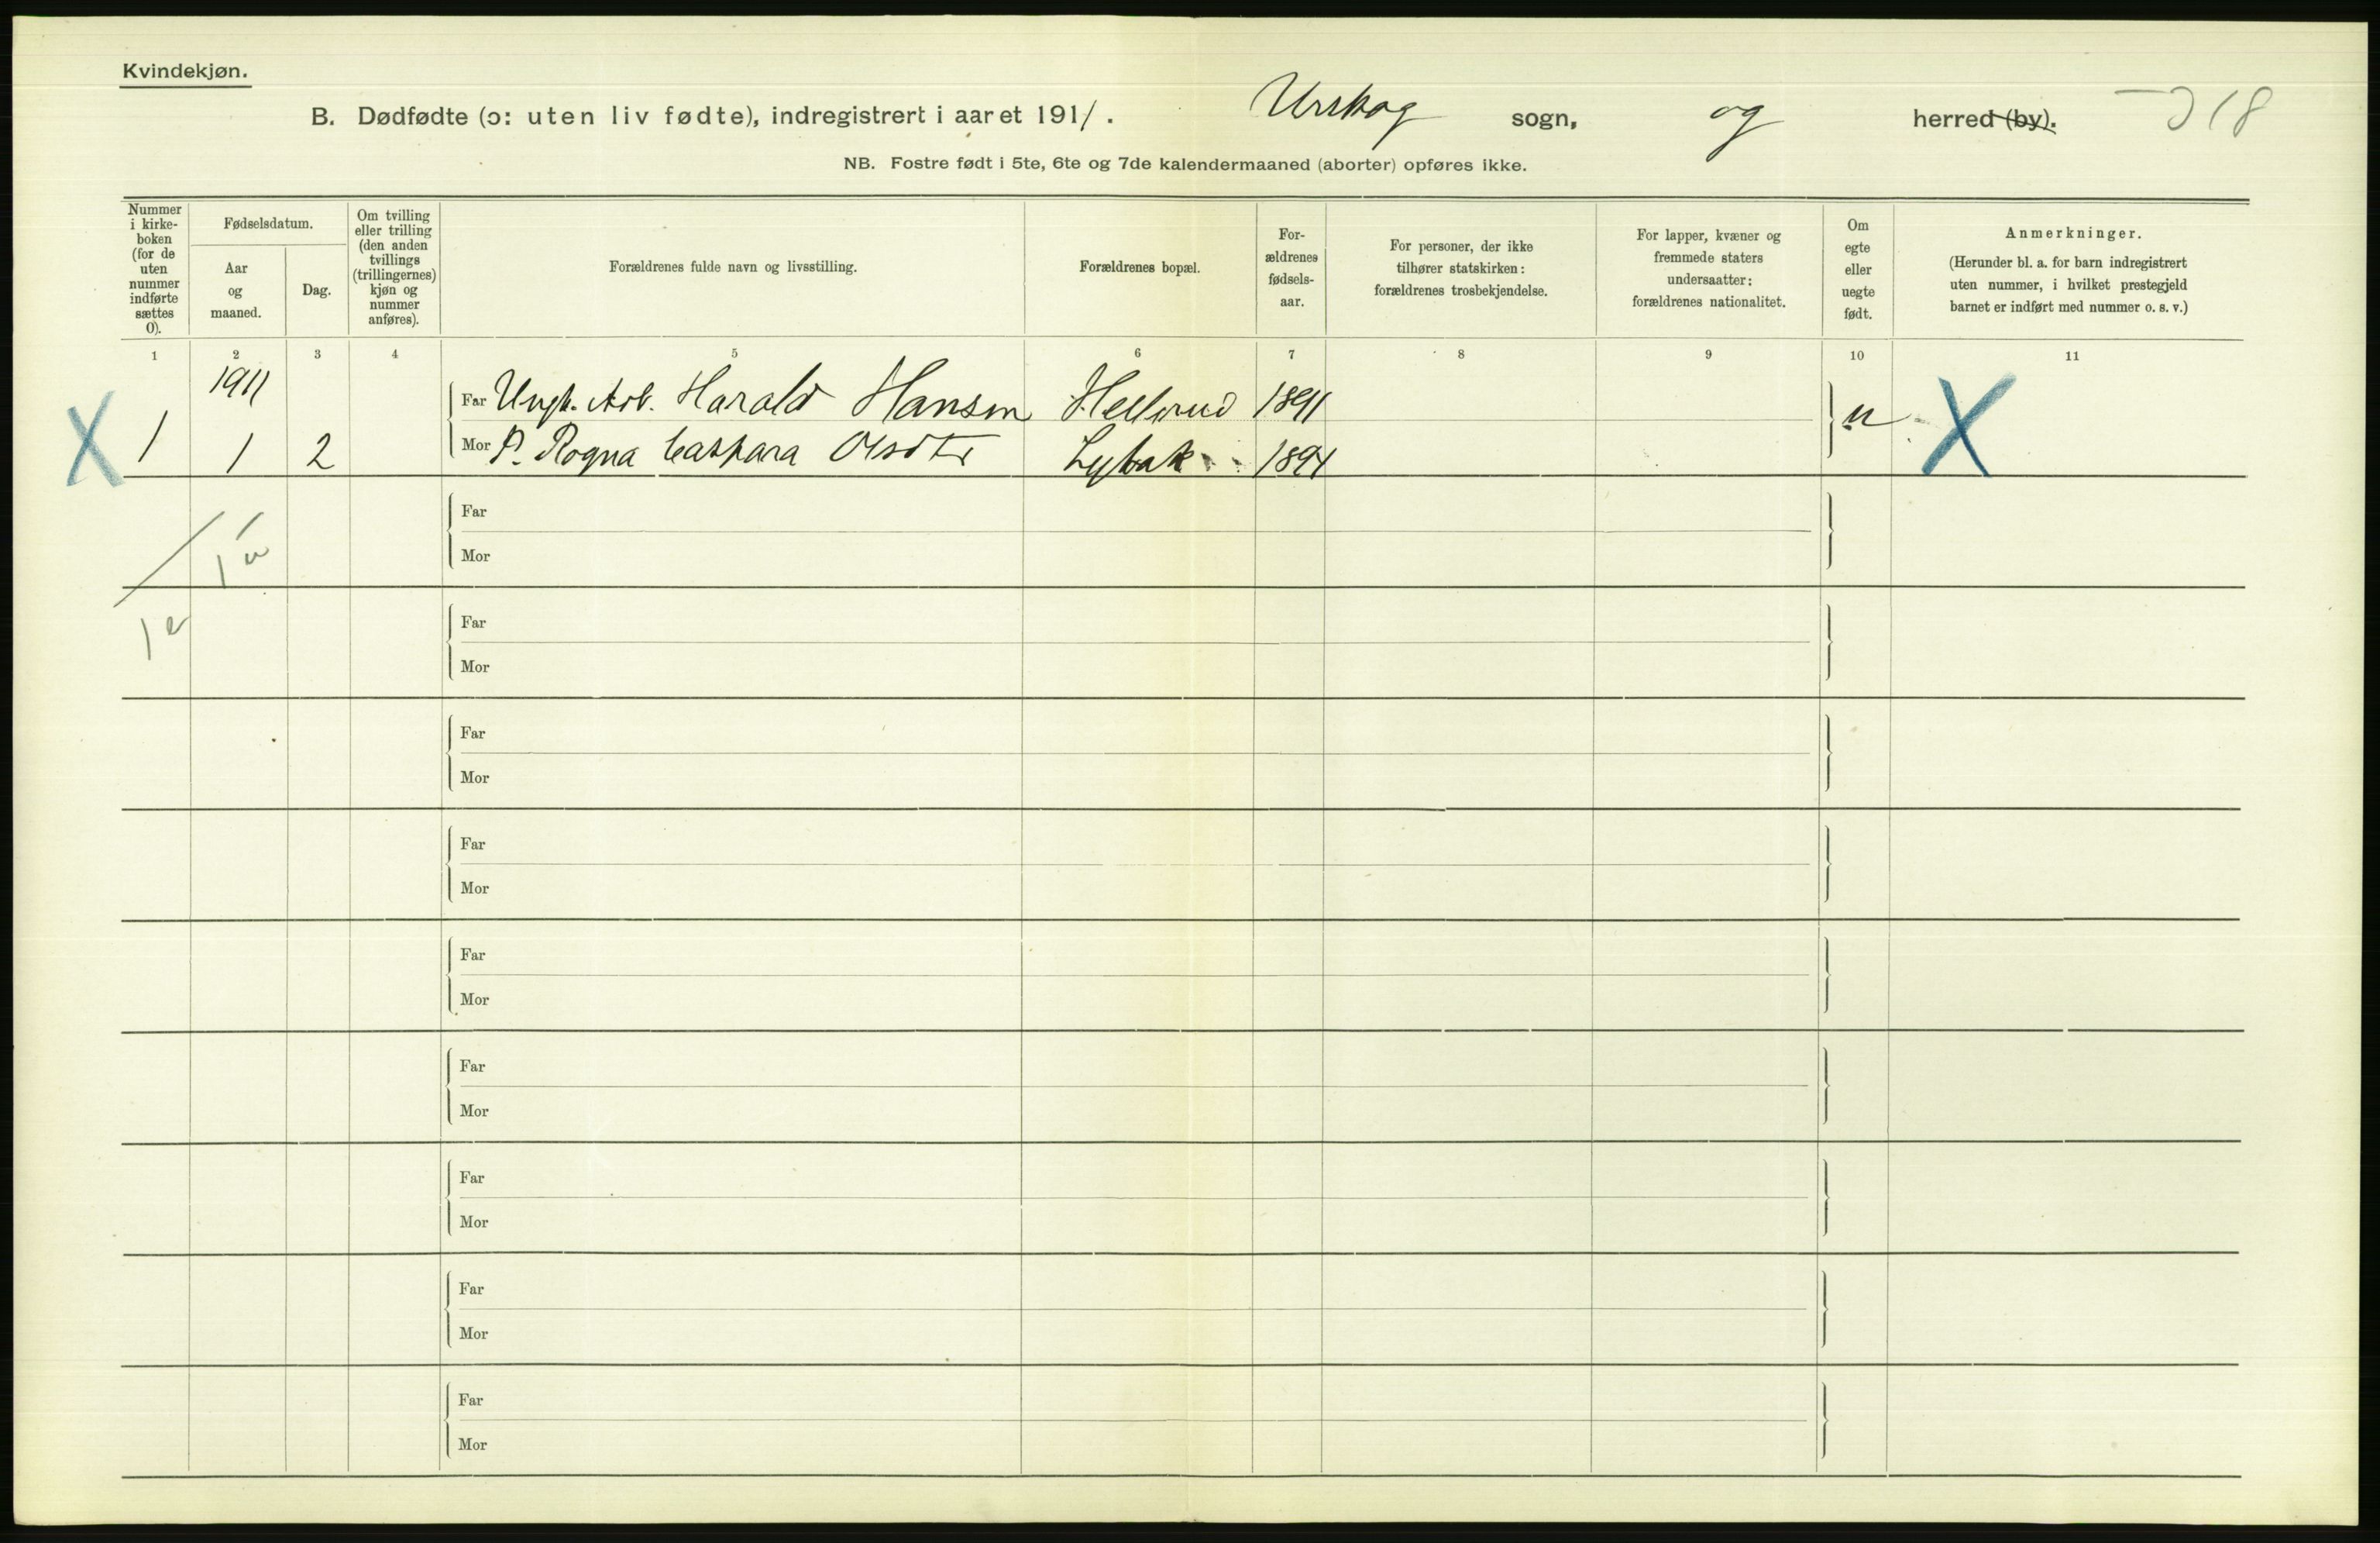 Kvindekjøn.
B. Dødfødte (ɔ: uten liv fødte), indregistrert i aaret 1911. Urskog sogn, og herred (by). 318
NB. Fostre født i 5te, 6te og 7de kalendermaaned (aborter) opføres ikke.
Nummer i kirke-boken (for de uten nummer indførte sættes 0).
Fødselsdatum.
Aar og maaned.
Dag.
Om tvilling eller trilling (den anden tvillings (trillingernes) kjøn og nummer anføres).
Forældrenes fulde navn og livsstilling.
Forældrenes bopæl.
For-ældrenes fødsels-aar.
For personer, der ikke tilhører statskirken: forældrenes trosbekjendelse.
For lapper, kvæner og fremmede staters undersaatter: forældrenes nationalitet.
Om egte eller uegte født.
Anmerkninger.
(Herunder bl. a. for barn indregistrert uten nummer, i hvilket prestegjeld barnet er indført med nummer o. s. v.)
1 2 3 4 5 6 7 8 9 10 11
1911
X Far Ungk. Arb. Harald Hansen Hellerud 1891 u X
1 1 2 Mor P. Ragna Caspara Olsdtr Lybak 1894
Far
1 u
Mor
Far
1 e
Mor
Far
Mor
Far
Mor
Far
Mor
Far
Mor
Far
Mor
Far
Mor
Far
Mor